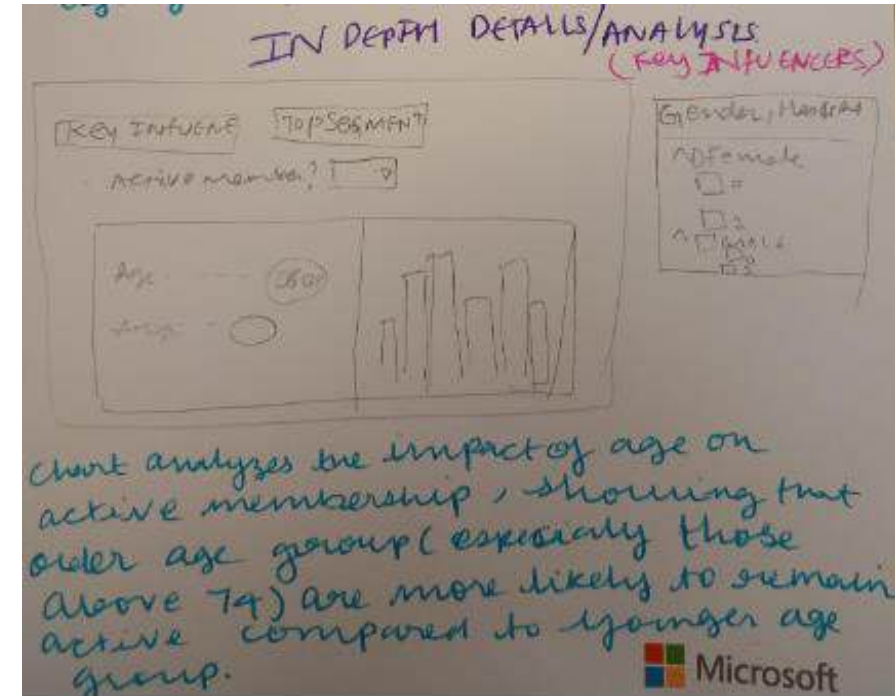 IN DEPTH DETAILS/ANALYSIS
(Key INFLUENCERS)
Key INFLUENE TOP SEGMENT
Active member?
Gender,
Female
Age
chart analyzes the impact of age on
active membership, showing that
older age group (especially those
above 74) are more likely to remain
active compared to younger age
group.
Microsoft